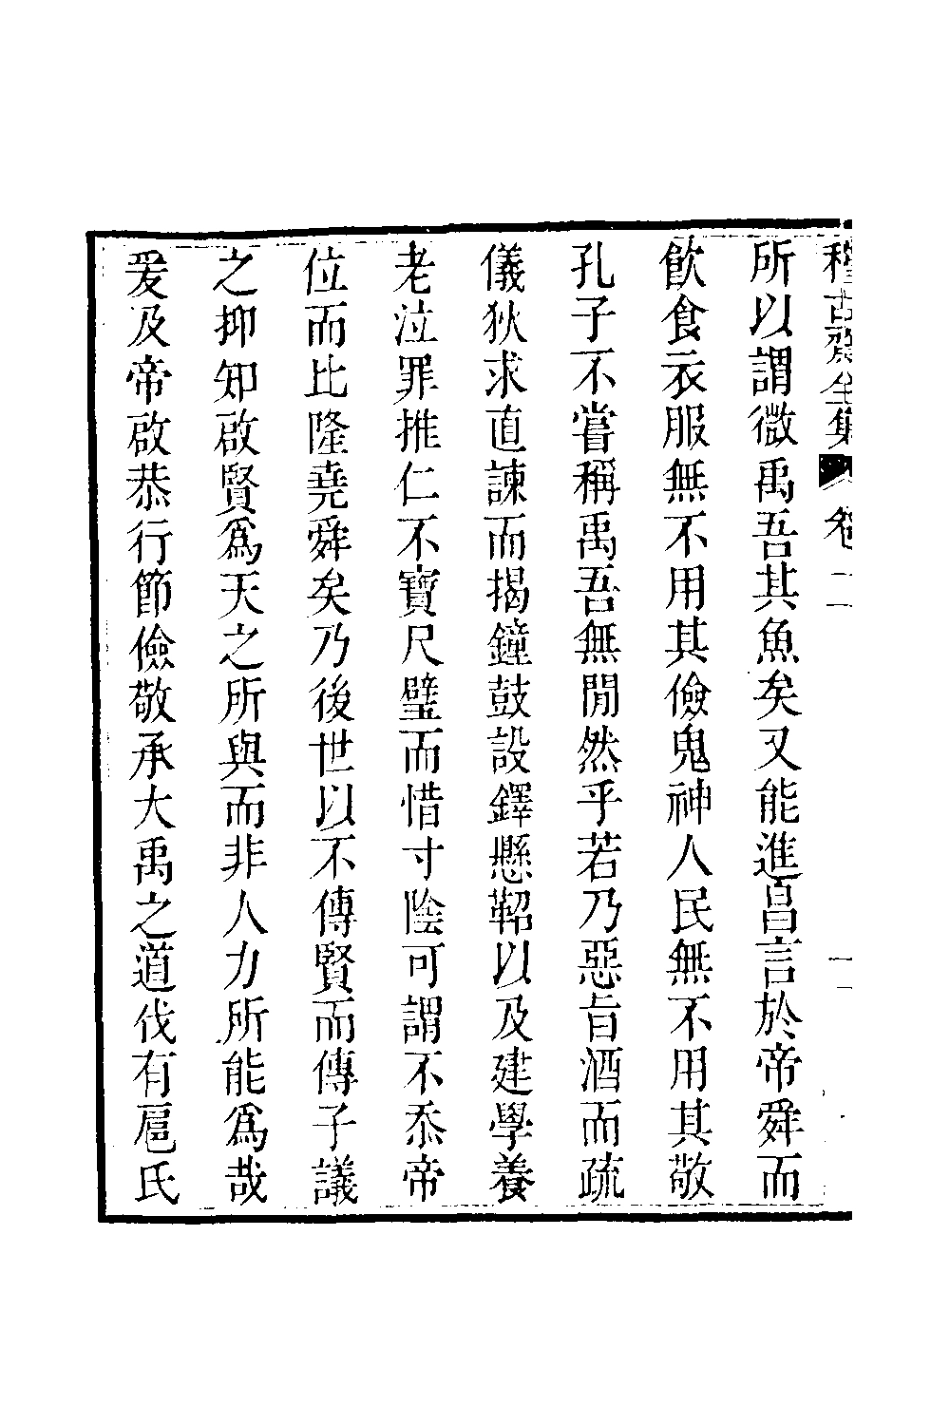 稽古齋全集 卷二
所以謂微禹吾其魚矣又能進昌言於帝舜而
飲食衣服無不用其儉鬼神人民無不用其敬
孔子不嘗稱禹吾無閒然乎若乃惡旨酒而疏
儀狄求直諫而揭鐘鼓設鐸懸鞀以及建學養
老泣罪推仁不寶尺璧而惜寸陰可謂不忝帝
位而比隆堯舜矣乃後世以不傳賢而傳子議
之抑知啟賢爲天之所與而非人力所能爲哉
爰及帝啟恭行節儉敬承大禹之道伐有扈氏